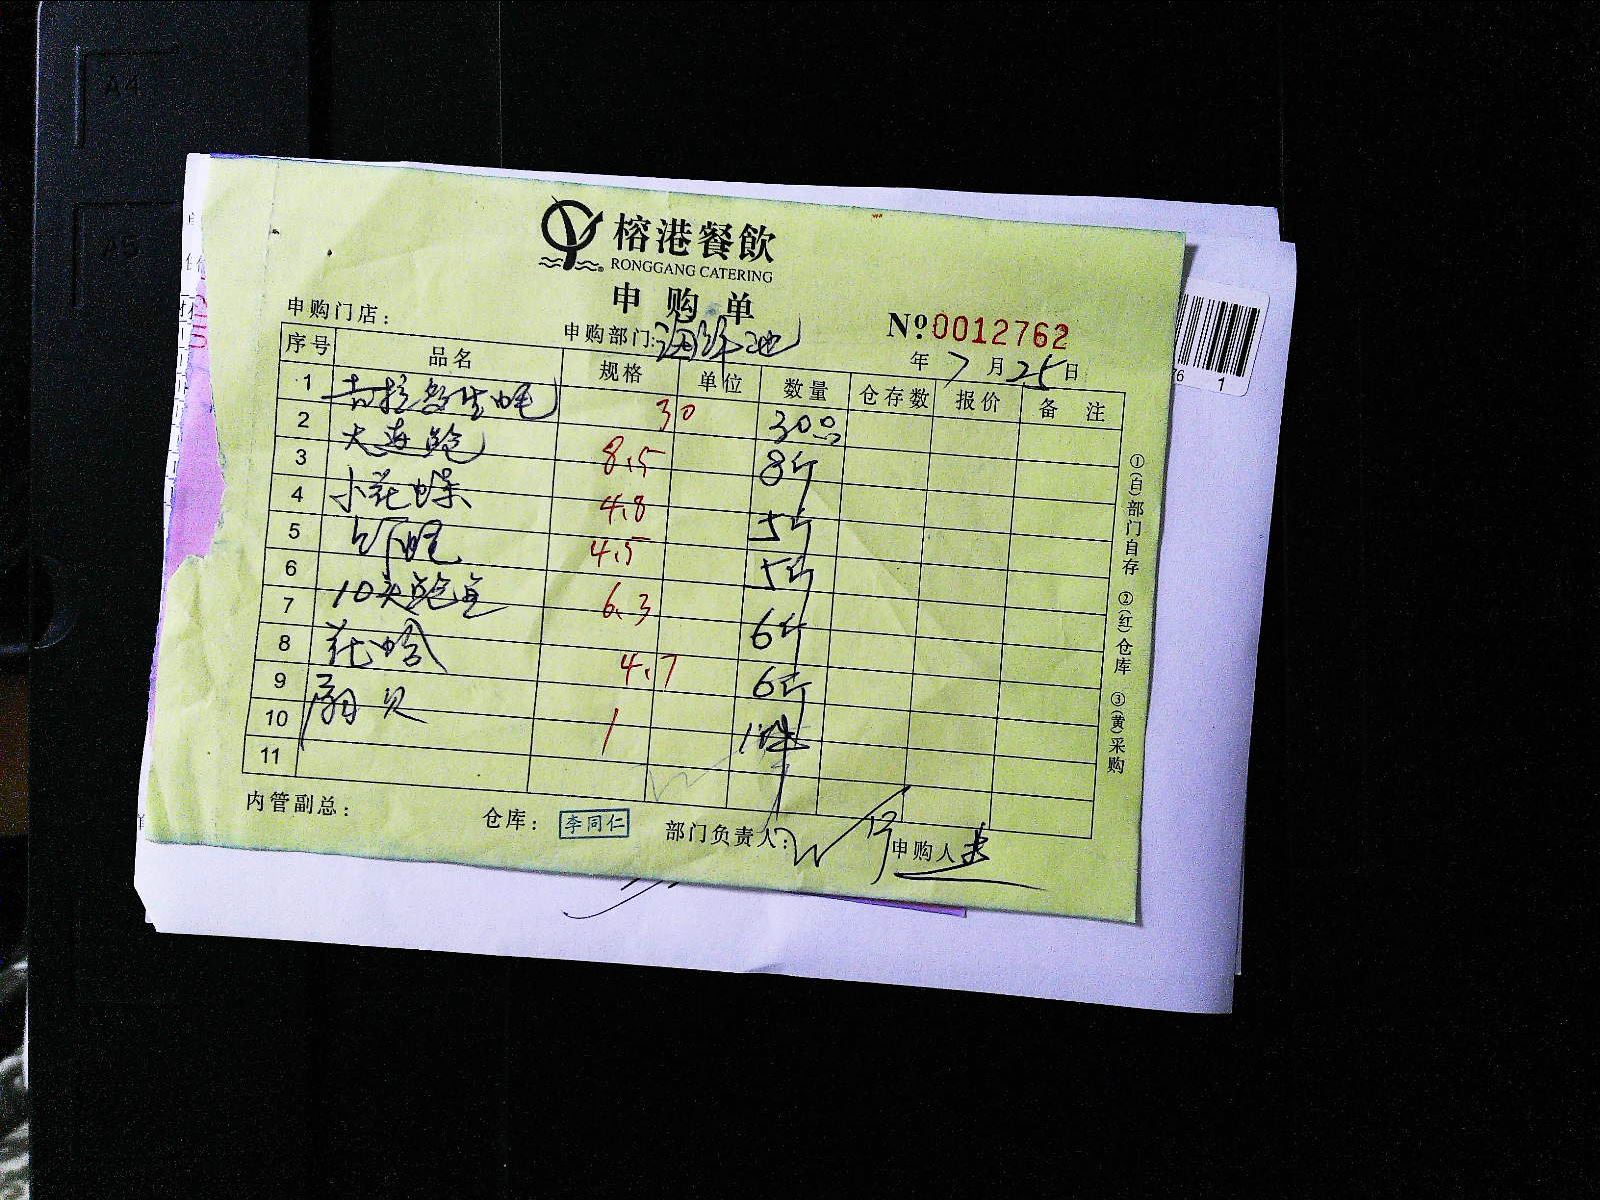 A4
A5
榕港餐飲
RONGGANG CATERING
申购单
申购门店：
申购部门：海鲜池
№0012762
年 7 月 25 日
序号 品名 规格 单位 数量 仓存数 报价 备 注
1 吉拉多生蚝 30 30只
2 大连鲍 8.5 8斤
3 小花螺 4.8 5斤
4 4.5 5斤
5 10头鲍鱼 6.3 6斤
6 花蛤 4.7 6斤
7 扇贝 1 1件
8
9
10
11
内管副总： 仓库：李同仁 部门负责人： 申购人
①(白)部门自存 ②(红)仓库 ③(黄)采购
76 1